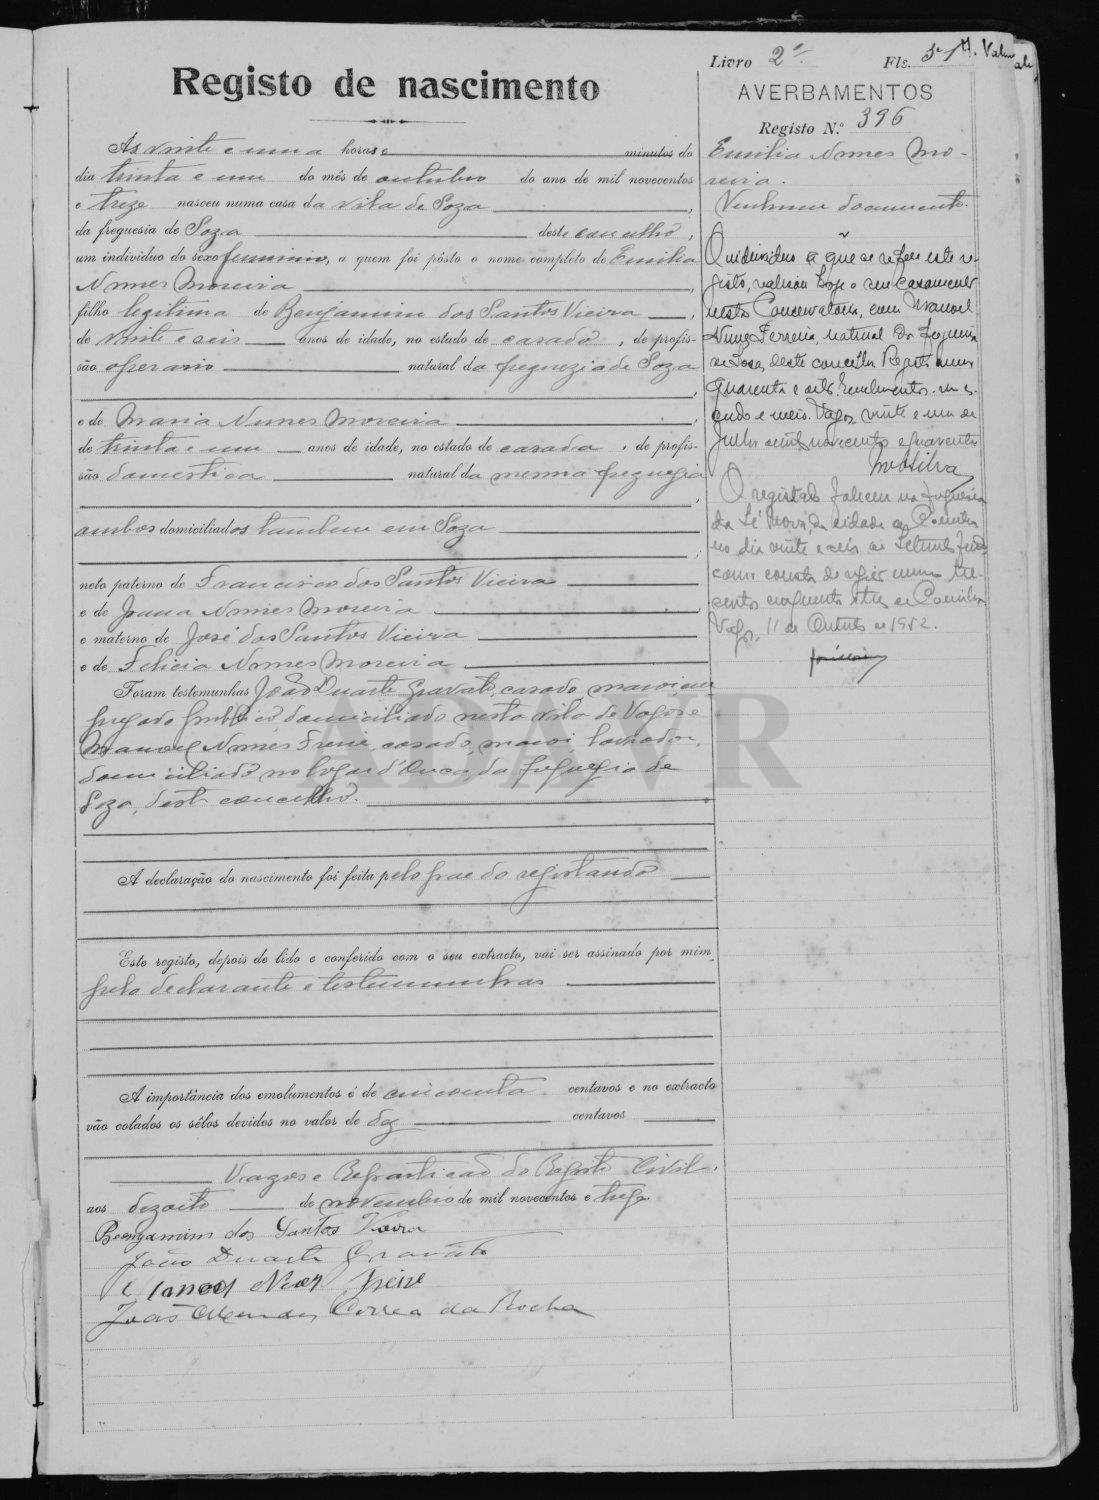 Livro 2º Fls. 51
Registo de nascimento
AVERBAMENTOS
Registo N.º 396
Ás vinte e uma horas e minutos do
dia trinta e um do mês de outubro do ano de mil novecentos
e treze nasceu numa casa da vila de Soza,
da freguesia de Soza deste concelho,
um indivíduo do sexo feminino, a quem foi pôsto o nome completo de Emilia
Nunes Moreira,
filho legitima de Benjamim dos Santos Vieira,
de vinte e seis anos de idade, no estado de casado, de profis-
são operario natural da freguezia de Soza
,
e de Maria Nunes Moreira,
de trinta e um anos de idade, no estado de casada, de profis-
são domestica natural da mesma freguezia
,
ambos domiciliados tambem em Soza
,
neto paterno de Francisco dos Santos Vieira
e de Joana Nunes Moreira,
e materno de José dos Santos Vieira
e de Felicia Nunes Moreira
Foram testemunhas João Duarte Gravato, casado, maior, em
pregado publico domiciliado nesta vila de Vagos e
Manoel Nunes Freire, casado, maior, lavrador,
domiciliado no logar d'Ouca, da freguezia de
Soza, deste concelho.
A declaração do nascimento foi feita pelo pae do registando
Este registo, depois de lido e conferido com o seu extracto, vai ser assinado por mim,
pelo declarante e testemunhas
A importância dos emolumentos é de cincoenta centavos e no extracto
vão colados os sêlos devidos no valor de dez centavos
Vagos e Repartição do Registo Civil.
aos dezoito de novembro de mil novecentos e treze
Benjamim dos Santos Vieira
João Duarte Gravato
Manoel Nunes Freire
João Mendes Correa da Rocha
Emilia Nunes Mo-
reira.
Nenhum documento.
O individuo a que se refere este re-
gisto, realisou hoje o seu casamento
nesta Conservatoria, com Manoel
Nunes Ferreira, natural da freguesia
de Soza, deste concelho. Registo numero
quarenta e oito. Emolumentos: um es-
cudo e meio. Vagos, vinte e um de
Julho de mil novecentos e quarenta
O registado faleceu na freguesia
da Sé Nova, da cidade de Coimbra
no dia vinte e seis de Setembro findo
como consta do registo numero tre-
sentos cincoenta e tres de Coimbra
Vagos, 11 de Outubro de 1982.
ADAVR